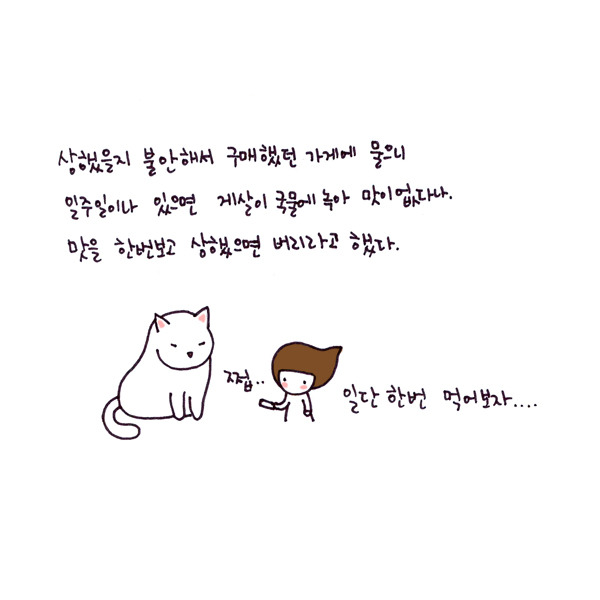 상했을지 불안해서 구매했던 가게에 물으니
일주일이나 있으면 게살이 국물에 녹아 맛이 없다나.
맛을 한번보고 상했으면 버리라고 했다.
쩝..
일단 한번 먹어보자....